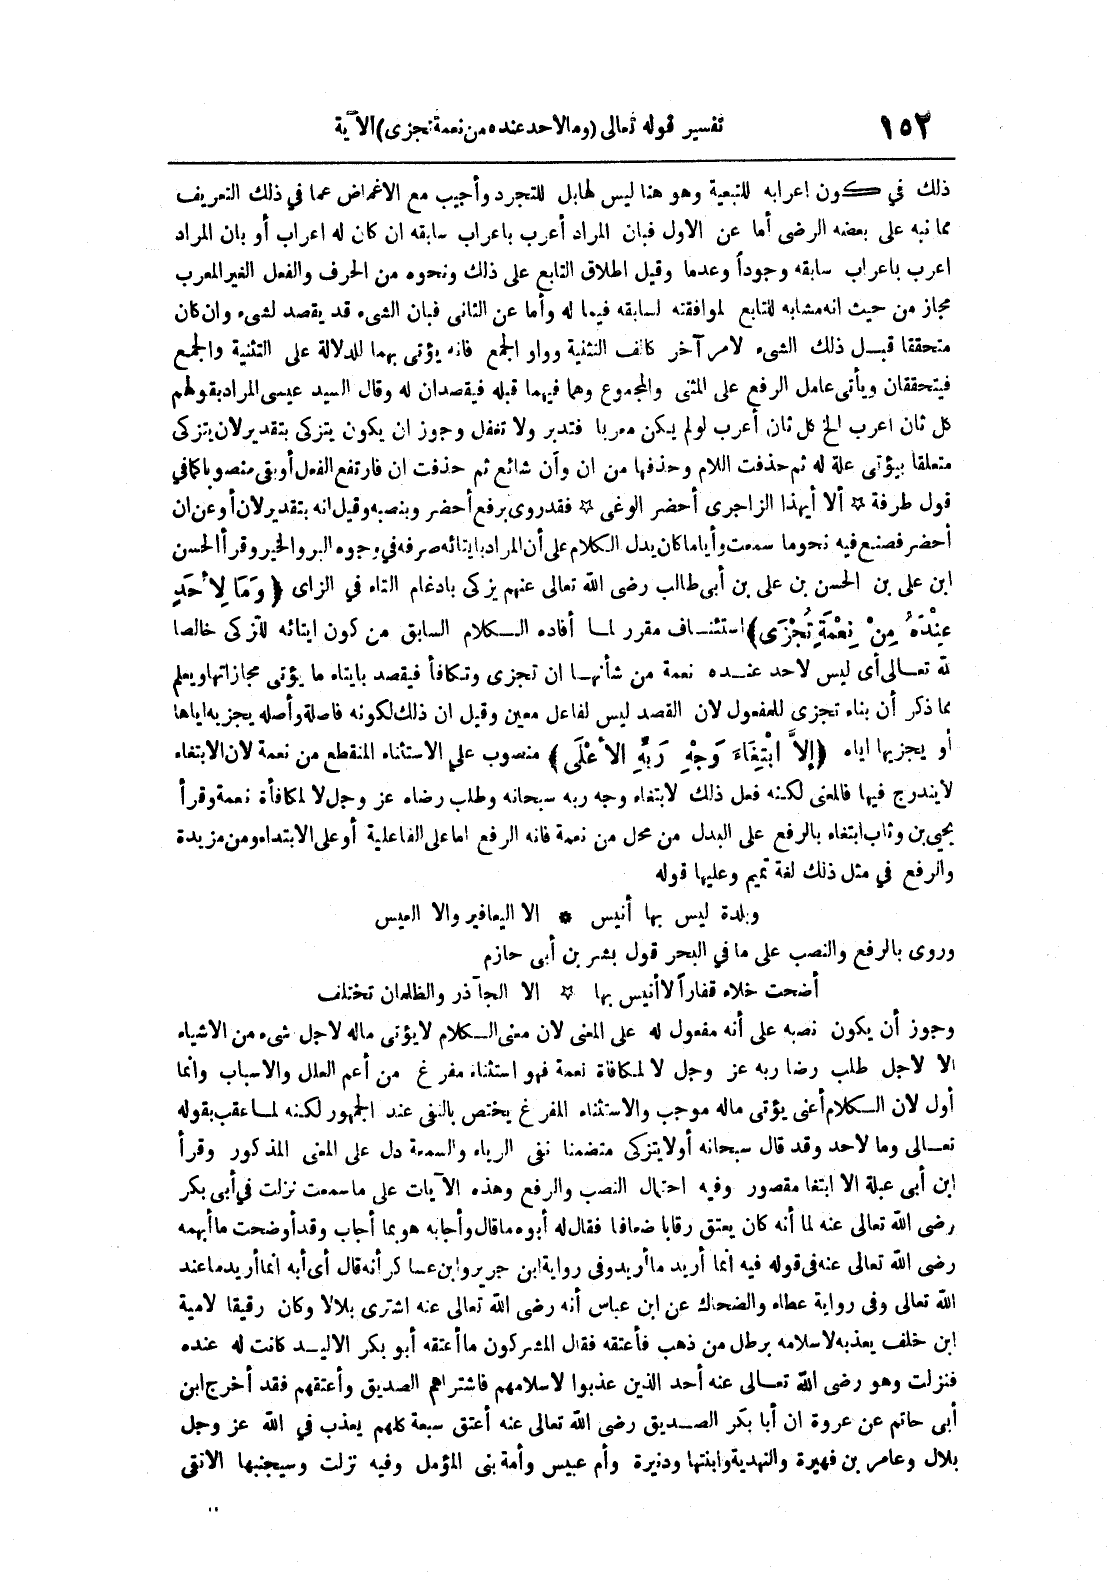 ١٥٢ تفسير قوله تعالى (وما لاحد عنده من نعمة تجزى) الآية
ذلك في كون إعرابه للتبعية وهو هنا ليس لها بل للتجرد وأجيب مع الاغماض عما في ذلك التعريف
مما نبه على بعضه الرضى أما عن الاول فبان المراد أعرب باعراب سابقه ان كان له اعراب أو بان المراد
اعرب باعراب سابقه وجوداً وعدما وقيل اطلاق التابع على ذلك ونحوه من الحرف والفعل الغير المعرب
مجاز من حيث انه مشابه للتابع لموافقته لسابقه فيما له وأما عن الثانى فبان الشىء قد يقصد لشىء وان كان
متحققا قبل ذلك الشىء لامر آخر كالف التثنية وواو الجمع فانه يؤتى بهما للدلالة على التثنية والجمع
فيتحققان ويأتى عامل الرفع على المثنى والمجموع وهما فيهما قبله فيقصدان له وقال السيد عيسى المراد بقولهم
كل ثان اعرب الخ كل ثان أعرب لو لم يكن معربا فتدبر ولا تغفل وجوز ان يكون يتزكى بتقدير لان يتزكى
متعلقا بيؤتى علة له ثم حذفت اللام وحذفها من ان وأن شائع ثم حذفت ان فارتفع الفعل أو بقى منصوبا كما في
قول طرفة ☆ ألا أيهذا الزاجرى أحضر الوغى ☆ فقد روى برفع أحضر وبنصبه وقيل انه بتقدير لان أو عن ان
أحضر فصنع فيه نحو ما سمعت وأياما كان يدل الكلام على أن المراد بايتائه صرفه في وجوه البر والخير وقرأ الحسن
ابن على بن الحسن بن على بن أبى طالب رضى الله تعالى عنهم يزكى بادغام التاء في الزاى (وَمَا لِأَحَدٍ
عِنْدَهُ مِنْ نِعْمَةٍ تُجْزَى) استئناف مقرر لما أفاده الكلام السابق من كون ايتائه للتزكى خالصا
لله تعالى أى ليس لاحد عنده نعمة من شأنها ان تجزى وتكافأ فيقصد بايتاء ما يؤتى مجازاتها ويعلم
مما ذكر أن بناء تجزى للمفعول لان القصد ليس لفاعل معين وقيل ان ذلك لكونه فاصلة وأصله يجزيه اياها
أو يجزيها اياه (إِلاَّ ابْتِغَاءَ وَجْهِ رَبِّهِ الأَعْلَى) منصوب على الاستثناء المنقطع من نعمة لان الابتغاء
لا يندرج فيها فالمعنى لكنه فعل ذلك لابتغاء وجه ربه سبحانه وطلب رضاه عز وجل لا لمكافأة نعمة وقرأ
يحيى بن وثاب ابتغاء بالرفع على البدل من محل من نعمة فانه الرفع اما على الفاعلية أو على الابتداء ومن مزيدة
والرفع في مثل ذلك لغة تميم وعليها قوله
وبلدة ليس بها أنيس * الا اليعافير والا العيس
وروى بالرفع والنصب على ما في البحر قول بشر بن أبى حازم
أضحت خلاء قفاراً لا أنيس بها ☆ الا الجآذر والظلمان تختلف
وجوز أن يكون نصبه على أنه مفعول له على المعنى لان معنى الكلام لا يؤتى ماله لاجل شىء من الاشياء
الا لاجل طلب رضا ربه عز وجل لا لمكافاة نعمة فهو استثناء مفرغ من أعم العلل والاسباب وانما
أول لان الكلام أعنى يؤتى ماله موجب والاستثناء المفرغ يختص بالنفى عند الجمهور لكنه لما عقب بقوله
تعالى وما لاحد وقد قال سبحانه أولا يتزكى متضمنا نفى الرياء والسمعة دل على المعنى المذكور وقرأ
ابن أبى عبلة الا ابتغا مقصور وفيه احتمال النصب والرفع وهذه الآيات على ما سمعت نزلت في أبى بكر
رضى الله تعالى عنه لما أنه كان يعتق رقابا ضعافا فقال له أبوه ما قال وأجابه هو بما أجاب وقد أوضحت ما أبهمه
رضى الله تعالى عنه في قوله فيه انما أريد ما أريد وفى رواية ابن جرير وابن عساكر أنه قال أى أبه انما أريد ما عند
الله تعالى وفى رواية عطاء والضحاك عن ابن عباس أنه رضى الله تعالى عنه اشترى بلالا وكان رقيقا لامية
ابن خلف يعذبه لاسلامه برطل من ذهب فأعتقه فقال المشركون ما أعتقه أبو بكر الا ليد كانت له عنده
فنزلت وهو رضى الله تعالى عنه أحد الذين عذبوا لاسلامهم فاشتراهم الصديق وأعتقهم فقد أخرج ابن
أبى حاتم عن عروة ان أبا بكر الصديق رضى الله تعالى عنه أعتق سبعة كلهم يعذب في الله عز وجل
بلال وعامر بن فهيرة والنهدية وابنتها ودنيرة وأم عبيس وأمة بنى المؤمل وفيه نزلت وسيجنبها الاتقى